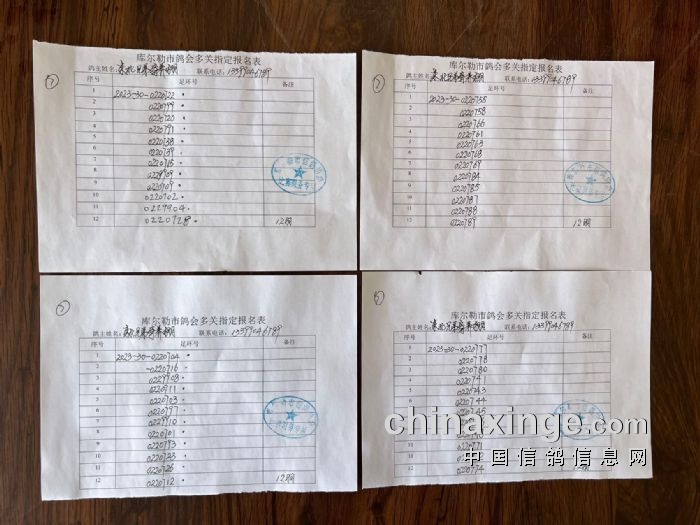 库尔勒市鸽会多关指定报名表
鸽主姓名: 联系电话: 13399046789
序号 足环号 备注
1 2023-30-0220722
2 0220799
3 0220720
4 0220791
5 0220738
6 0220739
7 0220715
8 0229909
9 0220709
10 0220702
11 0229904
12 0220728 12羽
库尔勒市鸽会多关指定报名表
鸽主姓名: 联系电话: 13399046789
序号 足环号 备注
1 2023-30-0220755
2 0220758
3 0220766
4 0220761
5 0220763
6 0220768
7 0220769
8 0220784
9 0220785
10 0220787
11 0220788
12 0220789 12羽
库尔勒市鸽会多关指定报名表
鸽主姓名: 联系电话: 13399046789
序号 足环号 备注
1 2023-30-0220704
2 -0220716
3 0229908
4 0220711
5 0220703
6 0220797
7 0229910
8 0220701
9 0220793
10 0220723
11 0220726
12 0220712 12羽
库尔勒市鸽会多关指定报名表
鸽主姓名: 联系电话: 13399046789
序号 足环号 备注
1 2023-30-0220777
2 0220778
3 0220780
4 0220741
5 0220743
6 0220744
7 0220745
11 0220771
12 0220774 12羽
chinaxinge.com
中国信鸽信息网